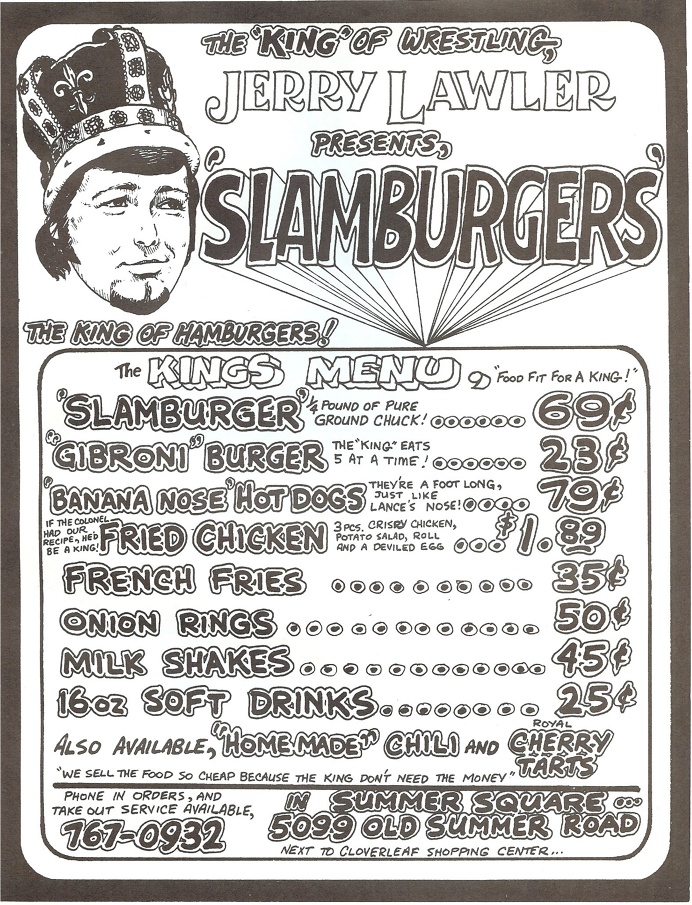 THE "KING" OF WRESTLING,
JERRY LAWLER
PRESENTS,
'SLAMBURGERS'
THE KING OF HAMBURGERS!
The KINGS MENU "FOOD FIT FOR A KING!"
"SLAMBURGER" 1/4 POUND OF PURE GROUND CHUCK! 69¢
"GIBRONI" BURGER THE "KING" EATS 5 AT A TIME! 23¢
"BANANA NOSE" HOT DOGS THEY'RE A FOOT LONG, JUST LIKE LANCE'S NOSE! 79¢
IF THE COLONEL HAD OUR RECIPE, HE'D BE A KING! FRIED CHICKEN 3 PCS. CRISPY CHICKEN, POTATO SALAD, ROLL AND A DEVILED EGG $1.89
FRENCH FRIES 35¢
ONION RINGS 50¢
MILK SHAKES 45¢
16 oz SOFT DRINKS 25¢
ALSO AVAILABLE, "HOME MADE" CHILI AND ROYAL CHERRY TARTS
"WE SELL THE FOOD SO CHEAP BECAUSE THE KING DON'T NEED THE MONEY"
PHONE IN ORDERS, AND
TAKE OUT SERVICE AVAILABLE,
767-0932
IN SUMMER SQUARE ...
5099 OLD SUMMER ROAD
NEXT TO CLOVERLEAF SHOPPING CENTER...